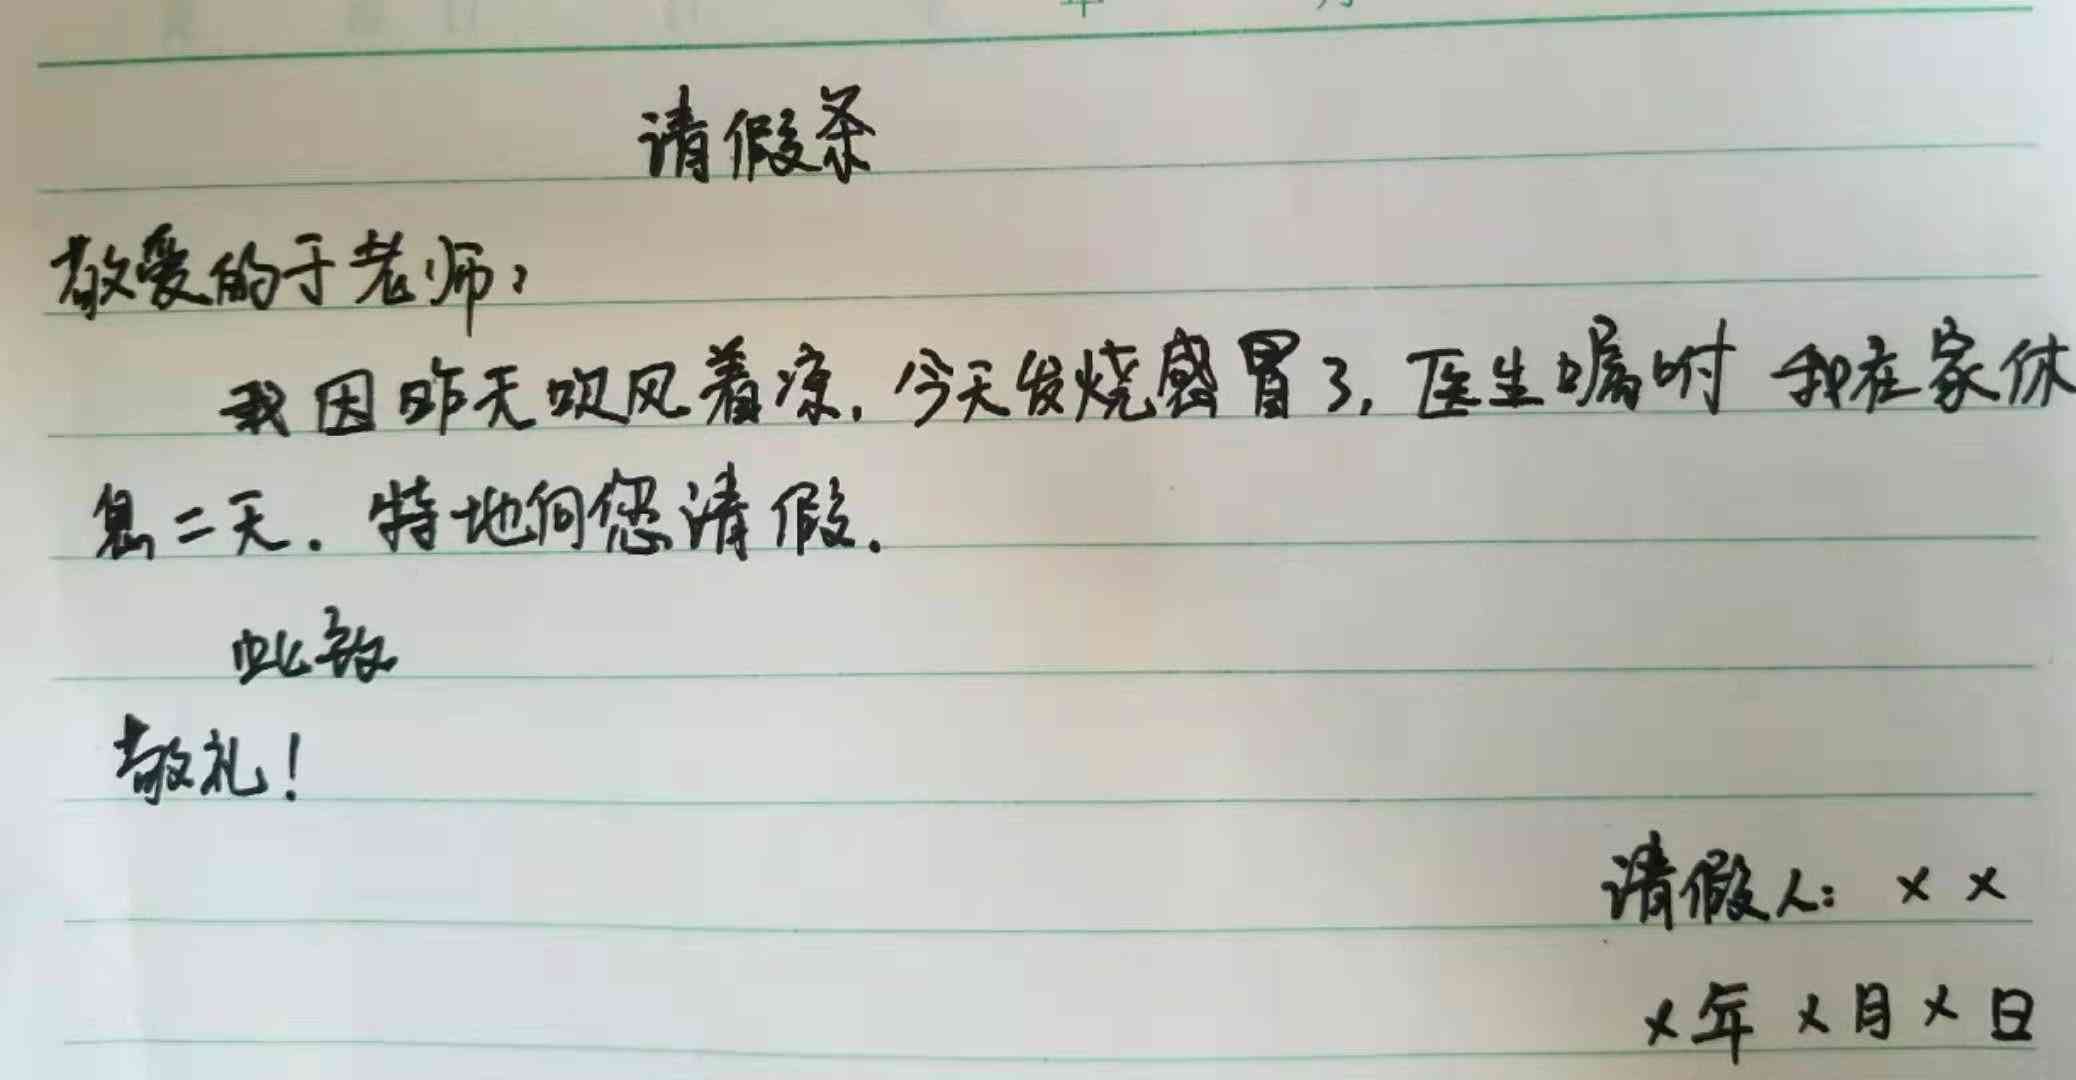 请假条
敬爱的于老师：
我因昨天吹风着凉，今天发烧感冒了，医生嘱咐我在家休
息二天。特地向您请假。
此致
敬礼！
请假人：××
×年×月×日